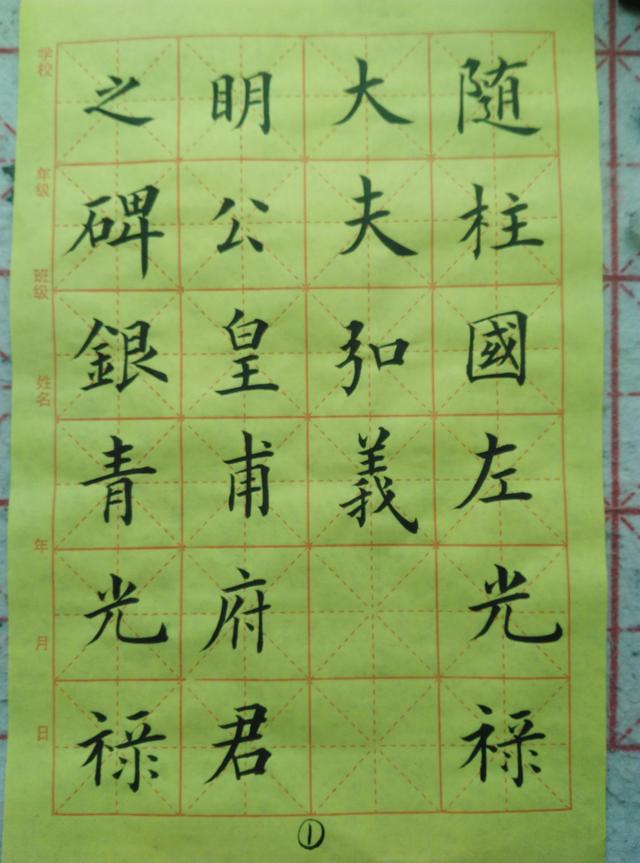 随柱國左光禄
大夫弘義
明公皇甫府君
之碑銀青光禄
学校 年级 班级 姓名 年 月 日
①